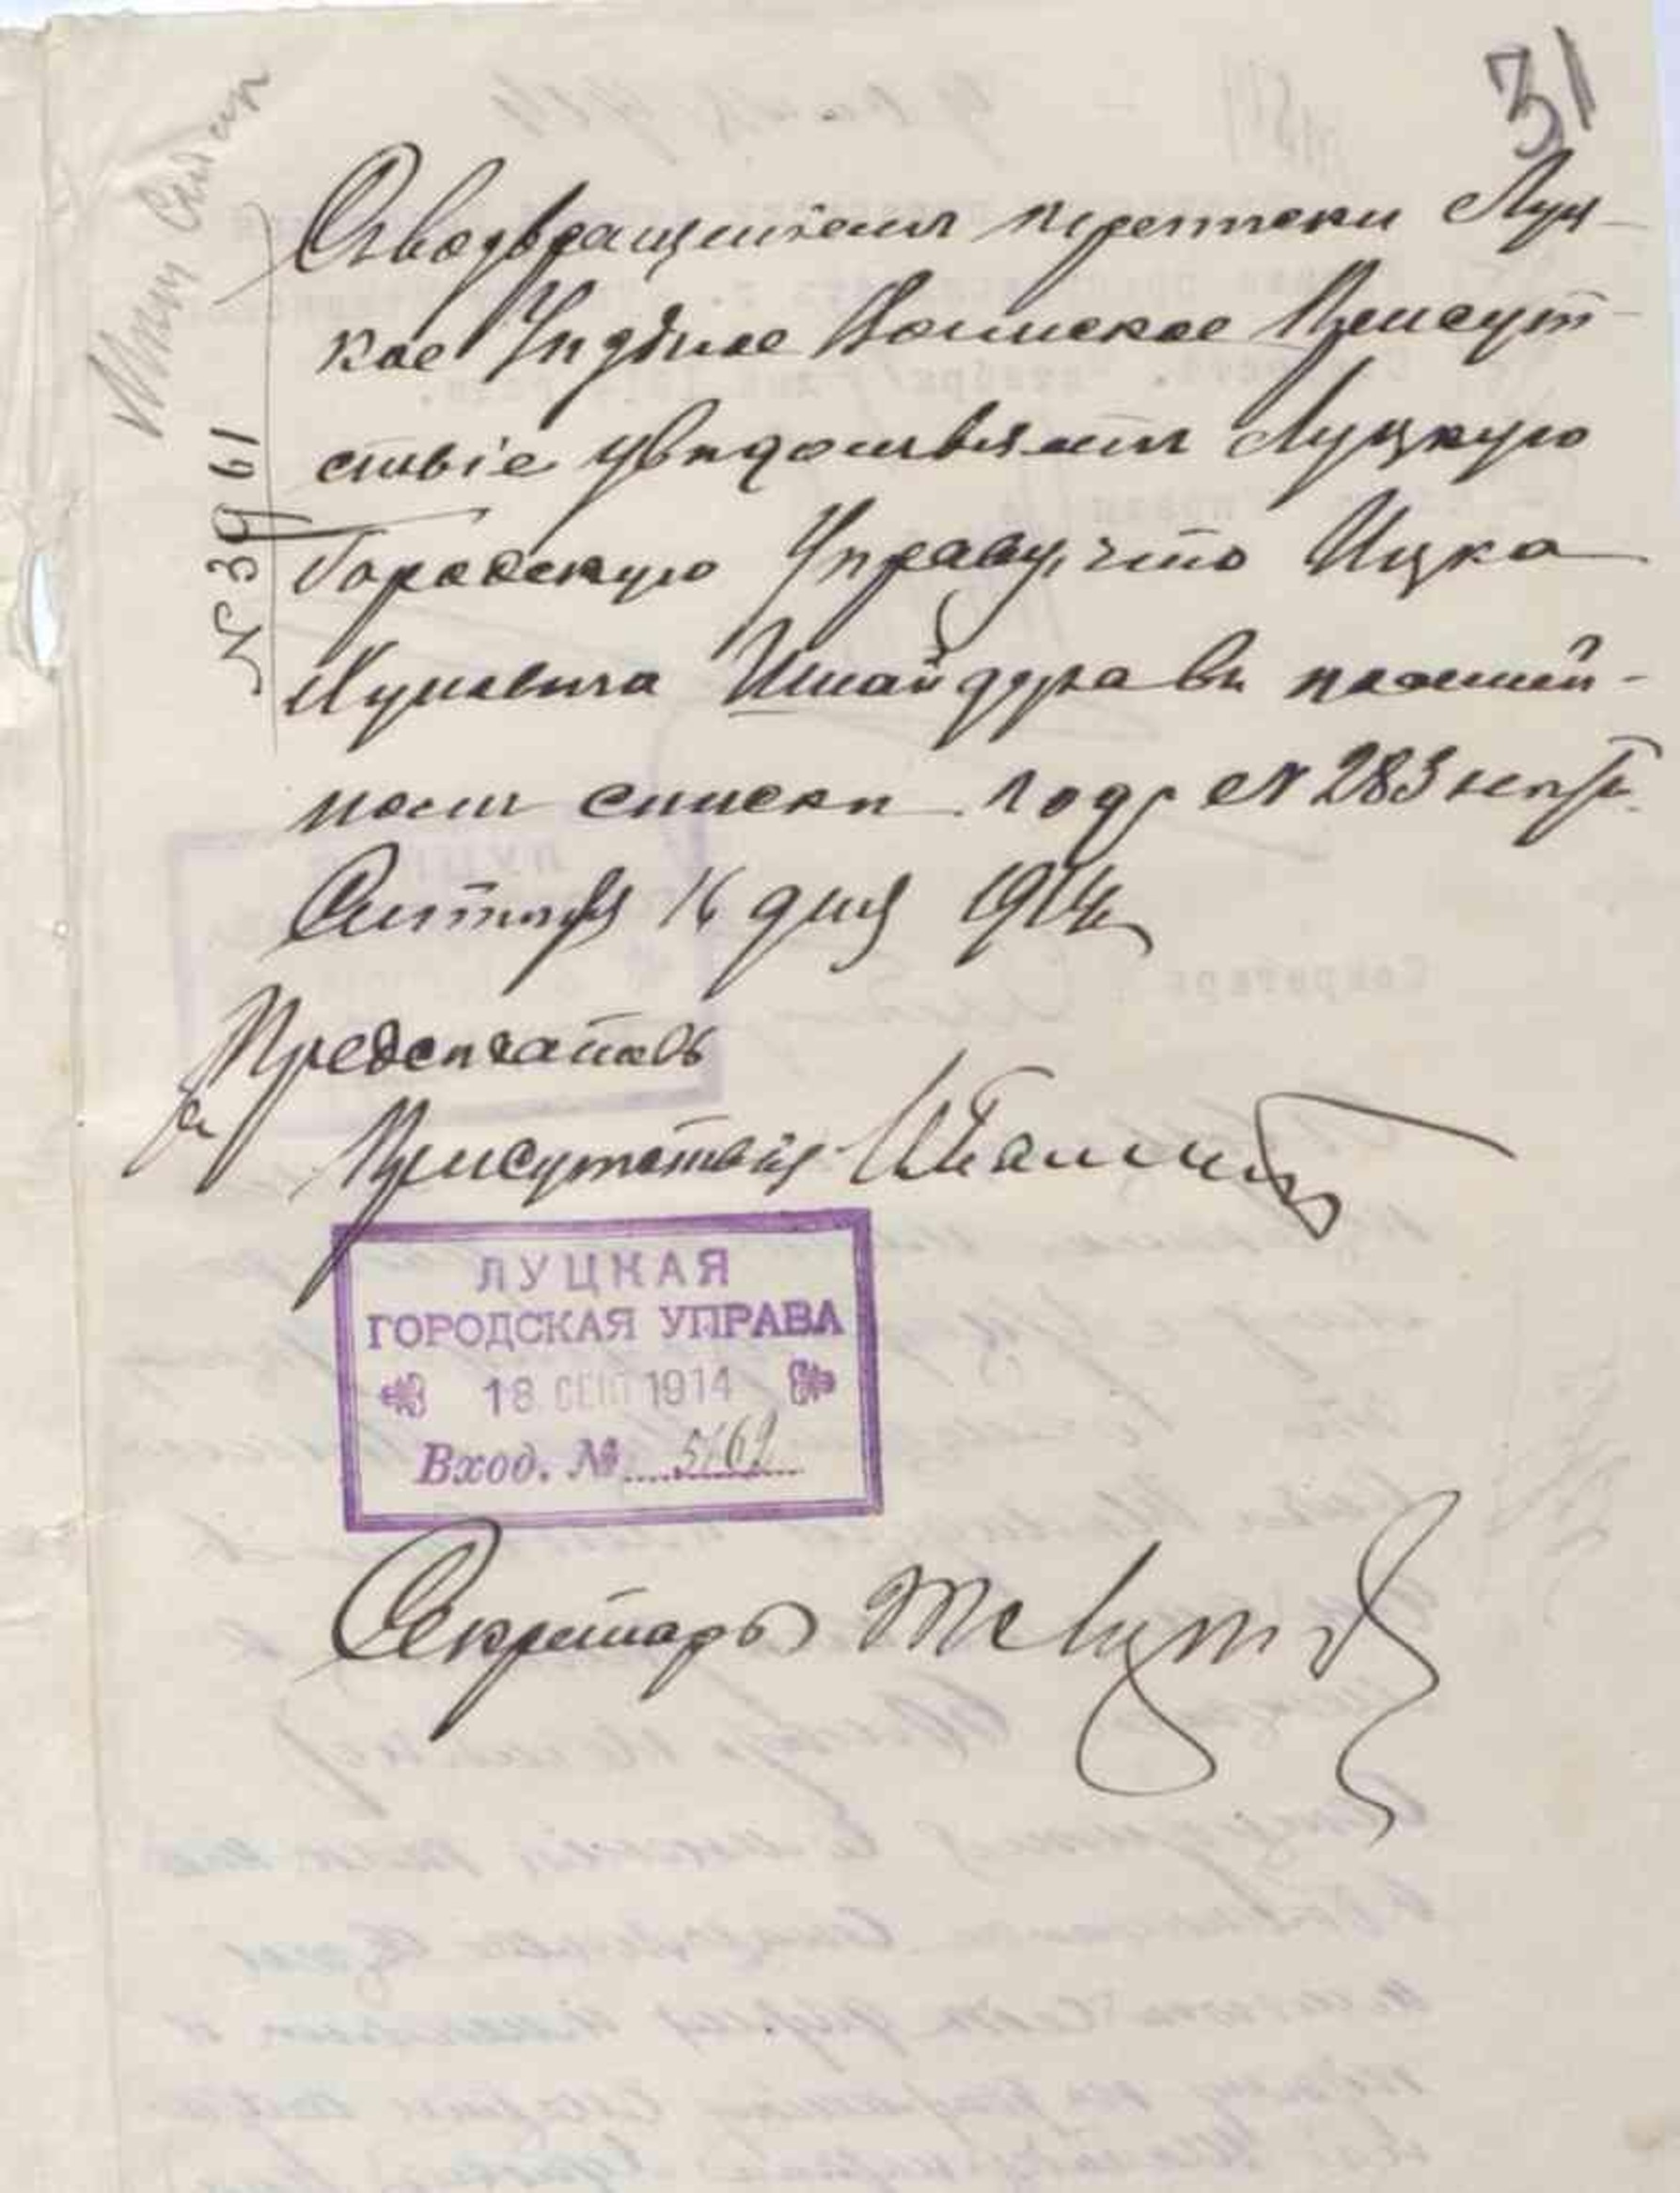 31
Съ возвращеніемъ переписки Луц-
кое Уѣздное Воинское Присут-
ствіе увѣдомляетъ Луцкую
Городскую Управу, что Ицка
Шнайдера въ
номъ спискѣ подъ № 283 нѣтъ.
Сентября 16 дня 1914 г.
№ 3961
Предсѣдатель
Присутствія
ЛУЦКАЯ
ГОРОДСКАЯ УПРАВА
18 СЕН 1914
Вход. № 5762
Секретарь